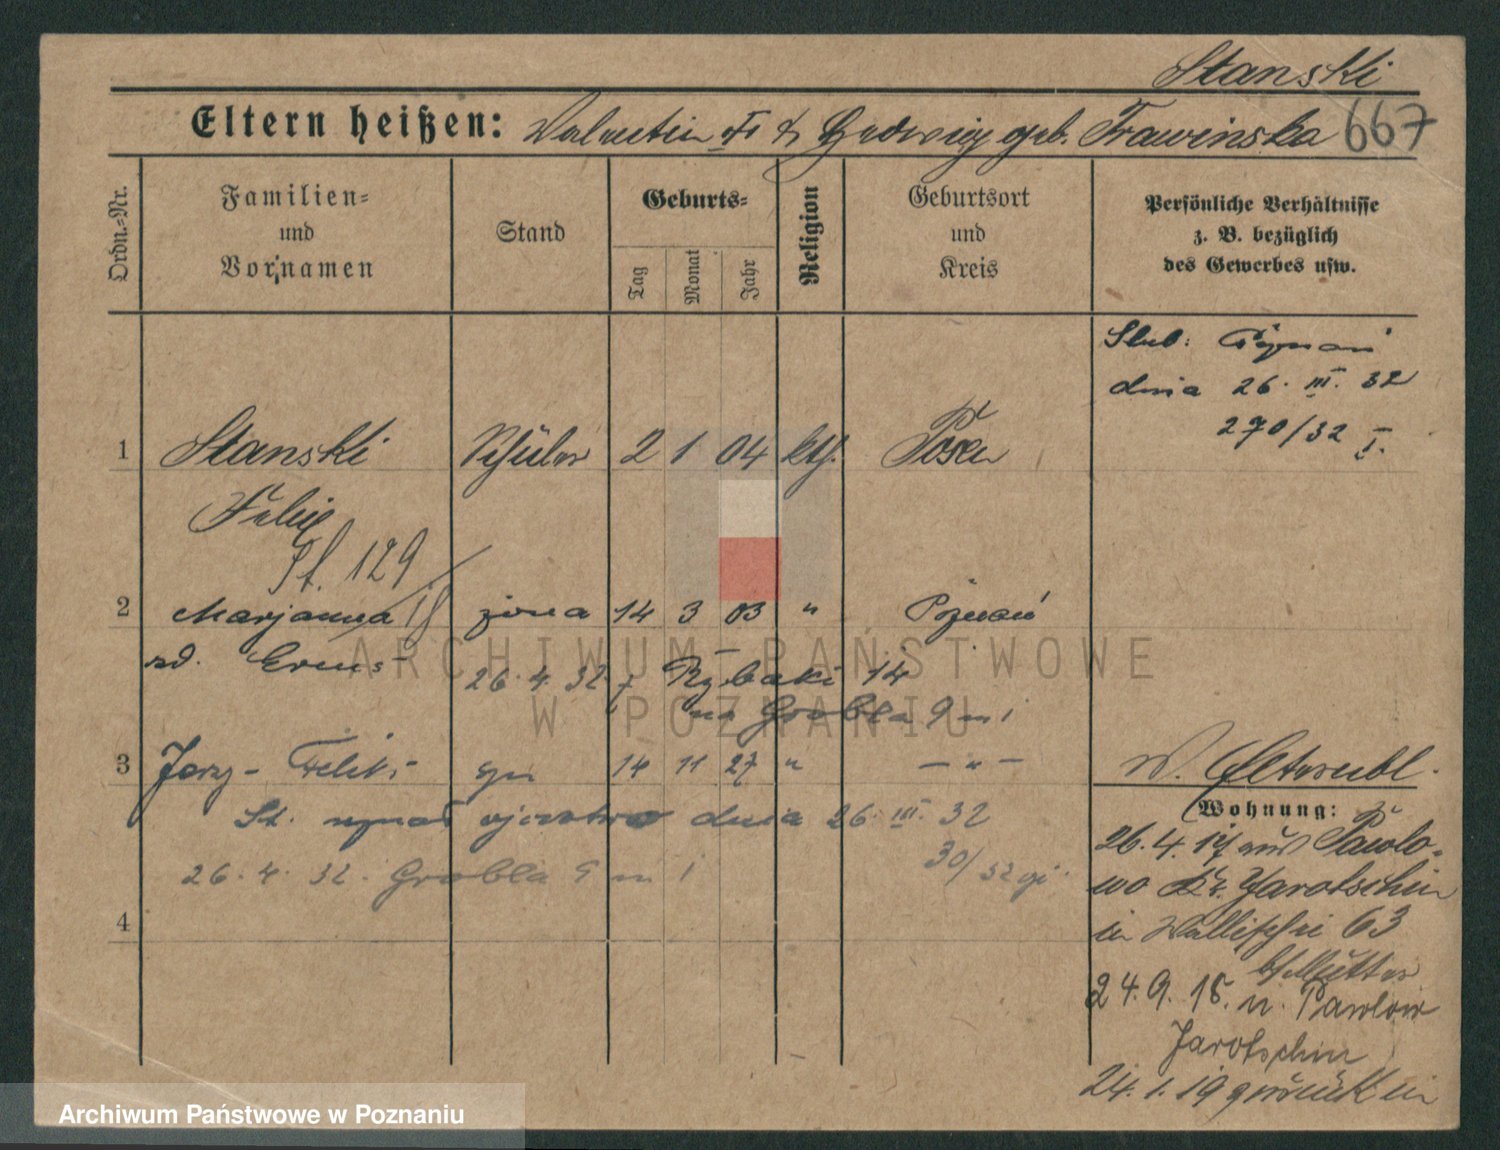 Stanski
Eltern heißen: Valentin & Hedwig geb. Trawinska 667
Ordn.-Nr.
Familien-
und
Vornamen
Stand
Geburts-
Tag
Monat
Jahr
Religion
Geburtsort
und
Kreis
Persönliche Verhältnisse
z. B. bezüglich
des Gewerbes usw.
Ślub: Poznań
dnia 26. III. 32
270/32 I.
1 Stanski Schüler 2 1 04 kth. Posen
Felix
129
2 Marjanna żona 14 3 03 " Poznań
26. 4. 32 Rybaki 14
na Grobla 9 m 1
3 Jerzy Feliks syn 14 11 27 " — " —
St. uznał ojcostwo dnia 26. III. 32
26. 4. 32. Grobla 9 m 1
30/32
4
W.
Wohnung:
26. 4. 17 aus Pawlo-
wo Kr. Jarotschin
in Wallischei 63
b/Mutter
24. 9. 18. n. Pawlow
Jarotschin
24. 1. 19 zurück in
ARCHIWUM PAŃSTWOWE
W POZNANIU
Archiwum Państwowe w Poznaniu